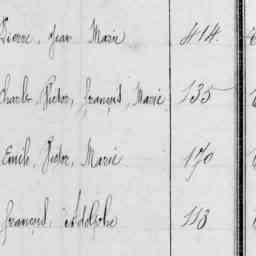 Pierre, Jean Marie 414.
Charles, Victor, François, Marie 135
Emile, Victor, Marie 170
François, Adolphe 113